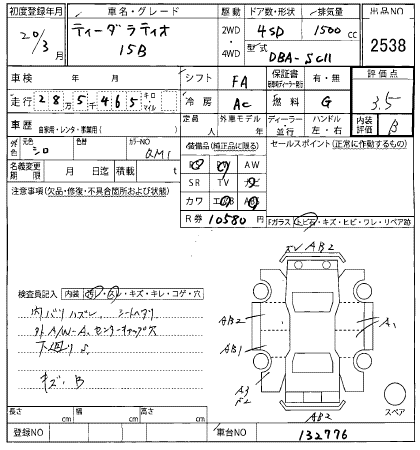 初度登録年月 車名・グレード 駆動 ドア数・形状 排気量 出品NO
20/3 ティーダラティオ 15B 2WD・4WD 4SD 1500cc 2538
型式 DBA-SC11
車検 年 月 シフト FA 保証書 有・無 評価点
走行 28万5千465 キロ・マイル 冷房 AC 燃料 G 3.5
車歴 自家用・レンタ・事業用( ) 定員 人 外車モデル 年 ディーラー 並行 ハンドル 左・右 内装評価 B
外色 元色 シロ 色替 カラーNO QM1
装備品(純正品に限る) セールスポイント(正常に作動するもの)
名義変更期限 月 日迄 積載 t
AW
SR TV ナビ
カワ エアB ABS
R券 10580円
注意事項(欠品・修復・不具合箇所および状態)
Fガラス トビ石・キズ・ヒビ・ワレ・リペア跡
検査員記入 内装 汚レ・スレ・キズ・キレ・コゲ・穴
内バリハズレ、シートヘタリ
外A/W-A、センターキャップ欠
下廻り
キズ、B
AB2
AB2
AB1
A1
A3
AB2
スペア
長さ cm 幅 cm 高さ cm
登録NO 車台NO 132776